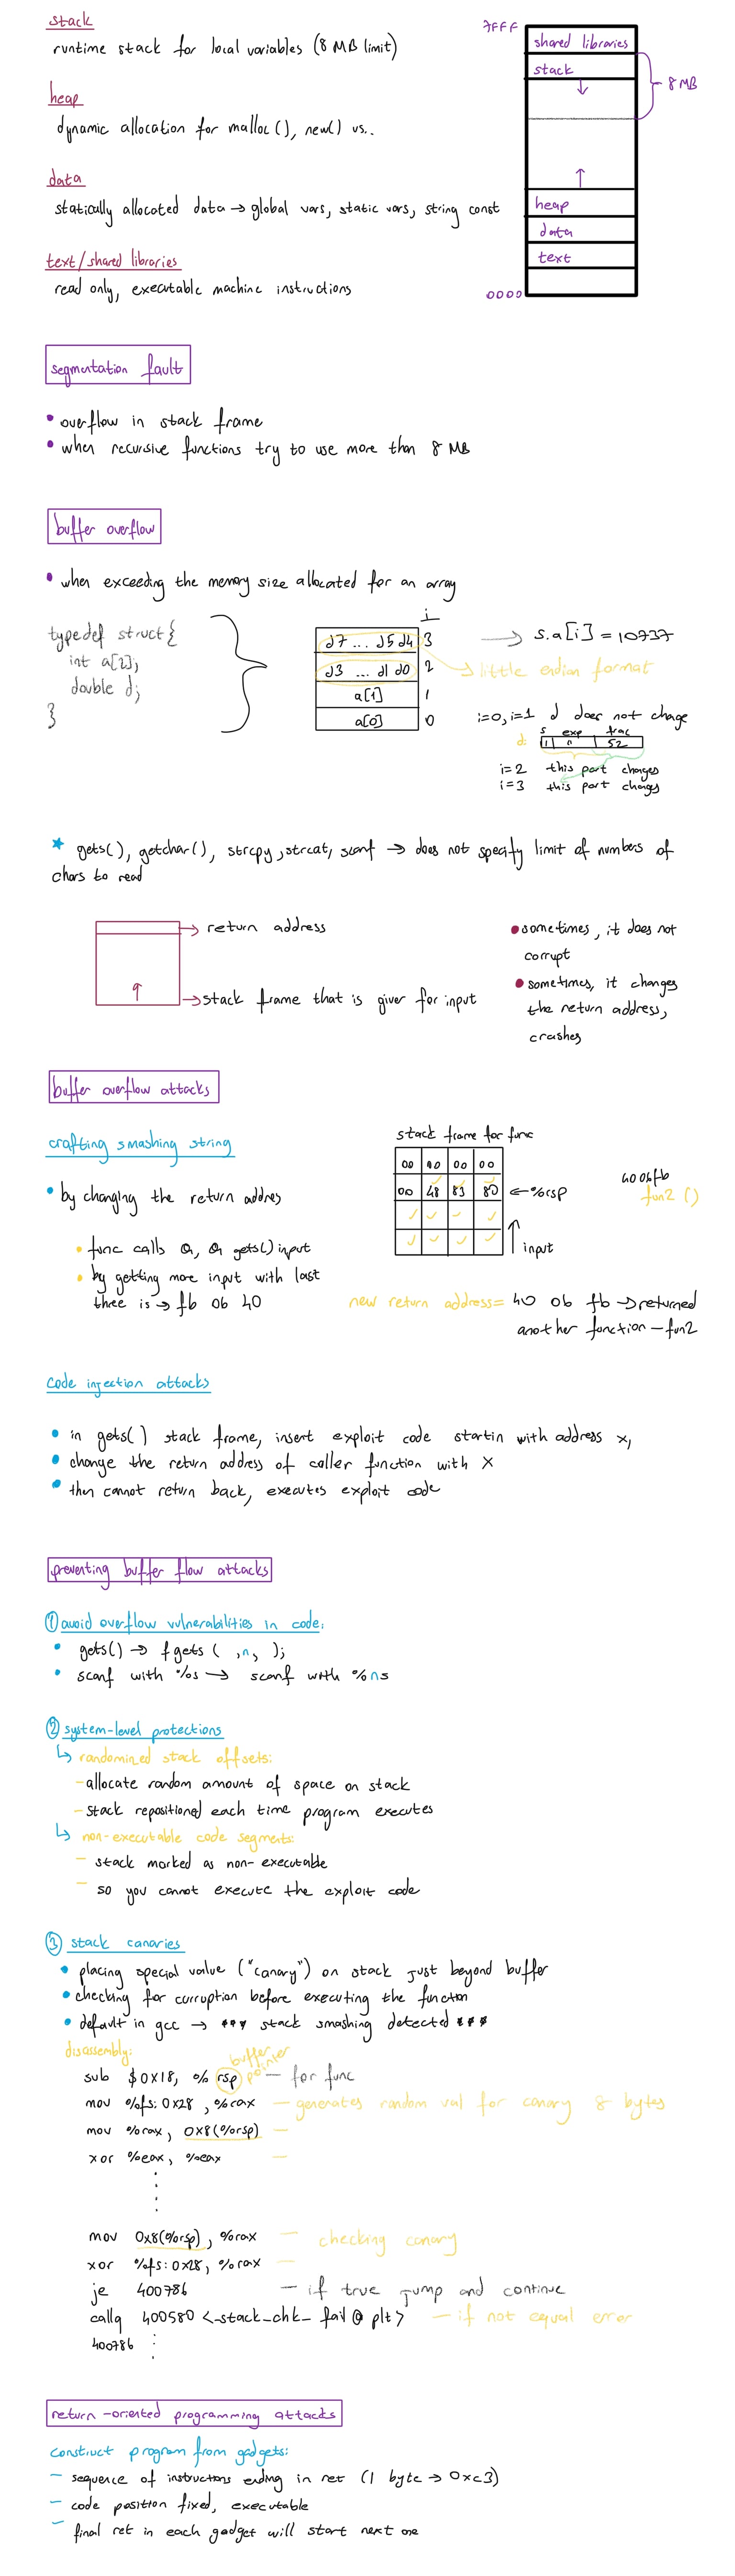 stack
runtime stack for local variables (8 MB limit)
heap
dynamic allocation for malloc(), new() vs..
data
statically allocated data → global vars, static vars, string const
text/shared libraries
read only, executable machine instructions
7FFF
shared libraries
stack
↓
8 MB
↑
heap
data
text
0000
segmentation fault
• overflow in stack frame
• when recursive functions try to use more than 8 MB
buffer overflow
• when exceeding the memory size allocated for an array
typedef struct {
int a[2];
double d;
}
i
d7 ... d5 d4 3
d3 ... d1 d0 2
a[1] 1
a[0] 0
→ s.a[i] = 10737
→ little endian format
i=0, i=1 d does not change
s exp frac
d: 52
i=2 this part changes
i=3 this part changes
★ gets(), getchar(), strcpy, strcat, scanf → does not specify limit of numbers of
chars to read
→ return address
→ stack frame that is given for input
• sometimes, it does not
corrupt
• sometimes, it changes
the return address,
crashes
buffer overflow attacks
crafting smashing string
• by changing the return addres
• func calls a, a gets() input
• by getting more input with last
three is → fb 0b 40
stack frame for func
00 00 00
00 48 83 80 ← %rsp
↑ input
4006fb
fun2 ()
new return address = 40 0b fb → returned
another function - fun2
code injection attacks
• in gets() stack frame, insert exploit code startin with address x,
• change the return address of caller function with X
• then cannot return back, executes exploit code
preventing buffer flow attacks
① avoid overflow vulnerabilities in code:
• gets() → fgets ( ,n, );
• scanf with %s → scanf with %ns
② system-level protections
↳ randomized stack offsets:
- allocate random amount of space on stack
- stack repositioned each time program executes
↳ non-executable code segments:
- stack marked as non-executable
- so you cannot execute the exploit code
③ stack canaries
• placing special value ("canary") on stack just beyond buffer
• checking for curruption before executing the function
• default in gcc → *** stack smashing detected ***
disassembly:
buffer pointer
sub $0x18, %rsp — for func
mov %fs:0x28, %rax — generates random val for canary 8 bytes
mov %rax, 0x8(%rsp) —
xor %eax, %eax —
mov 0x8(%rsp), %rax — checking canary
xor %fs:0x28, %rax —
je 400786 — if true jump and continue
callq 400580 <_stack_chk_fail@plt> — if not equal error
400786
return-oriented programming attacks
construct program from gadgets:
- sequence of instructions ending in ret (1 byte → 0xc3)
- code position fixed, executable
- final ret in each gadget will start next one